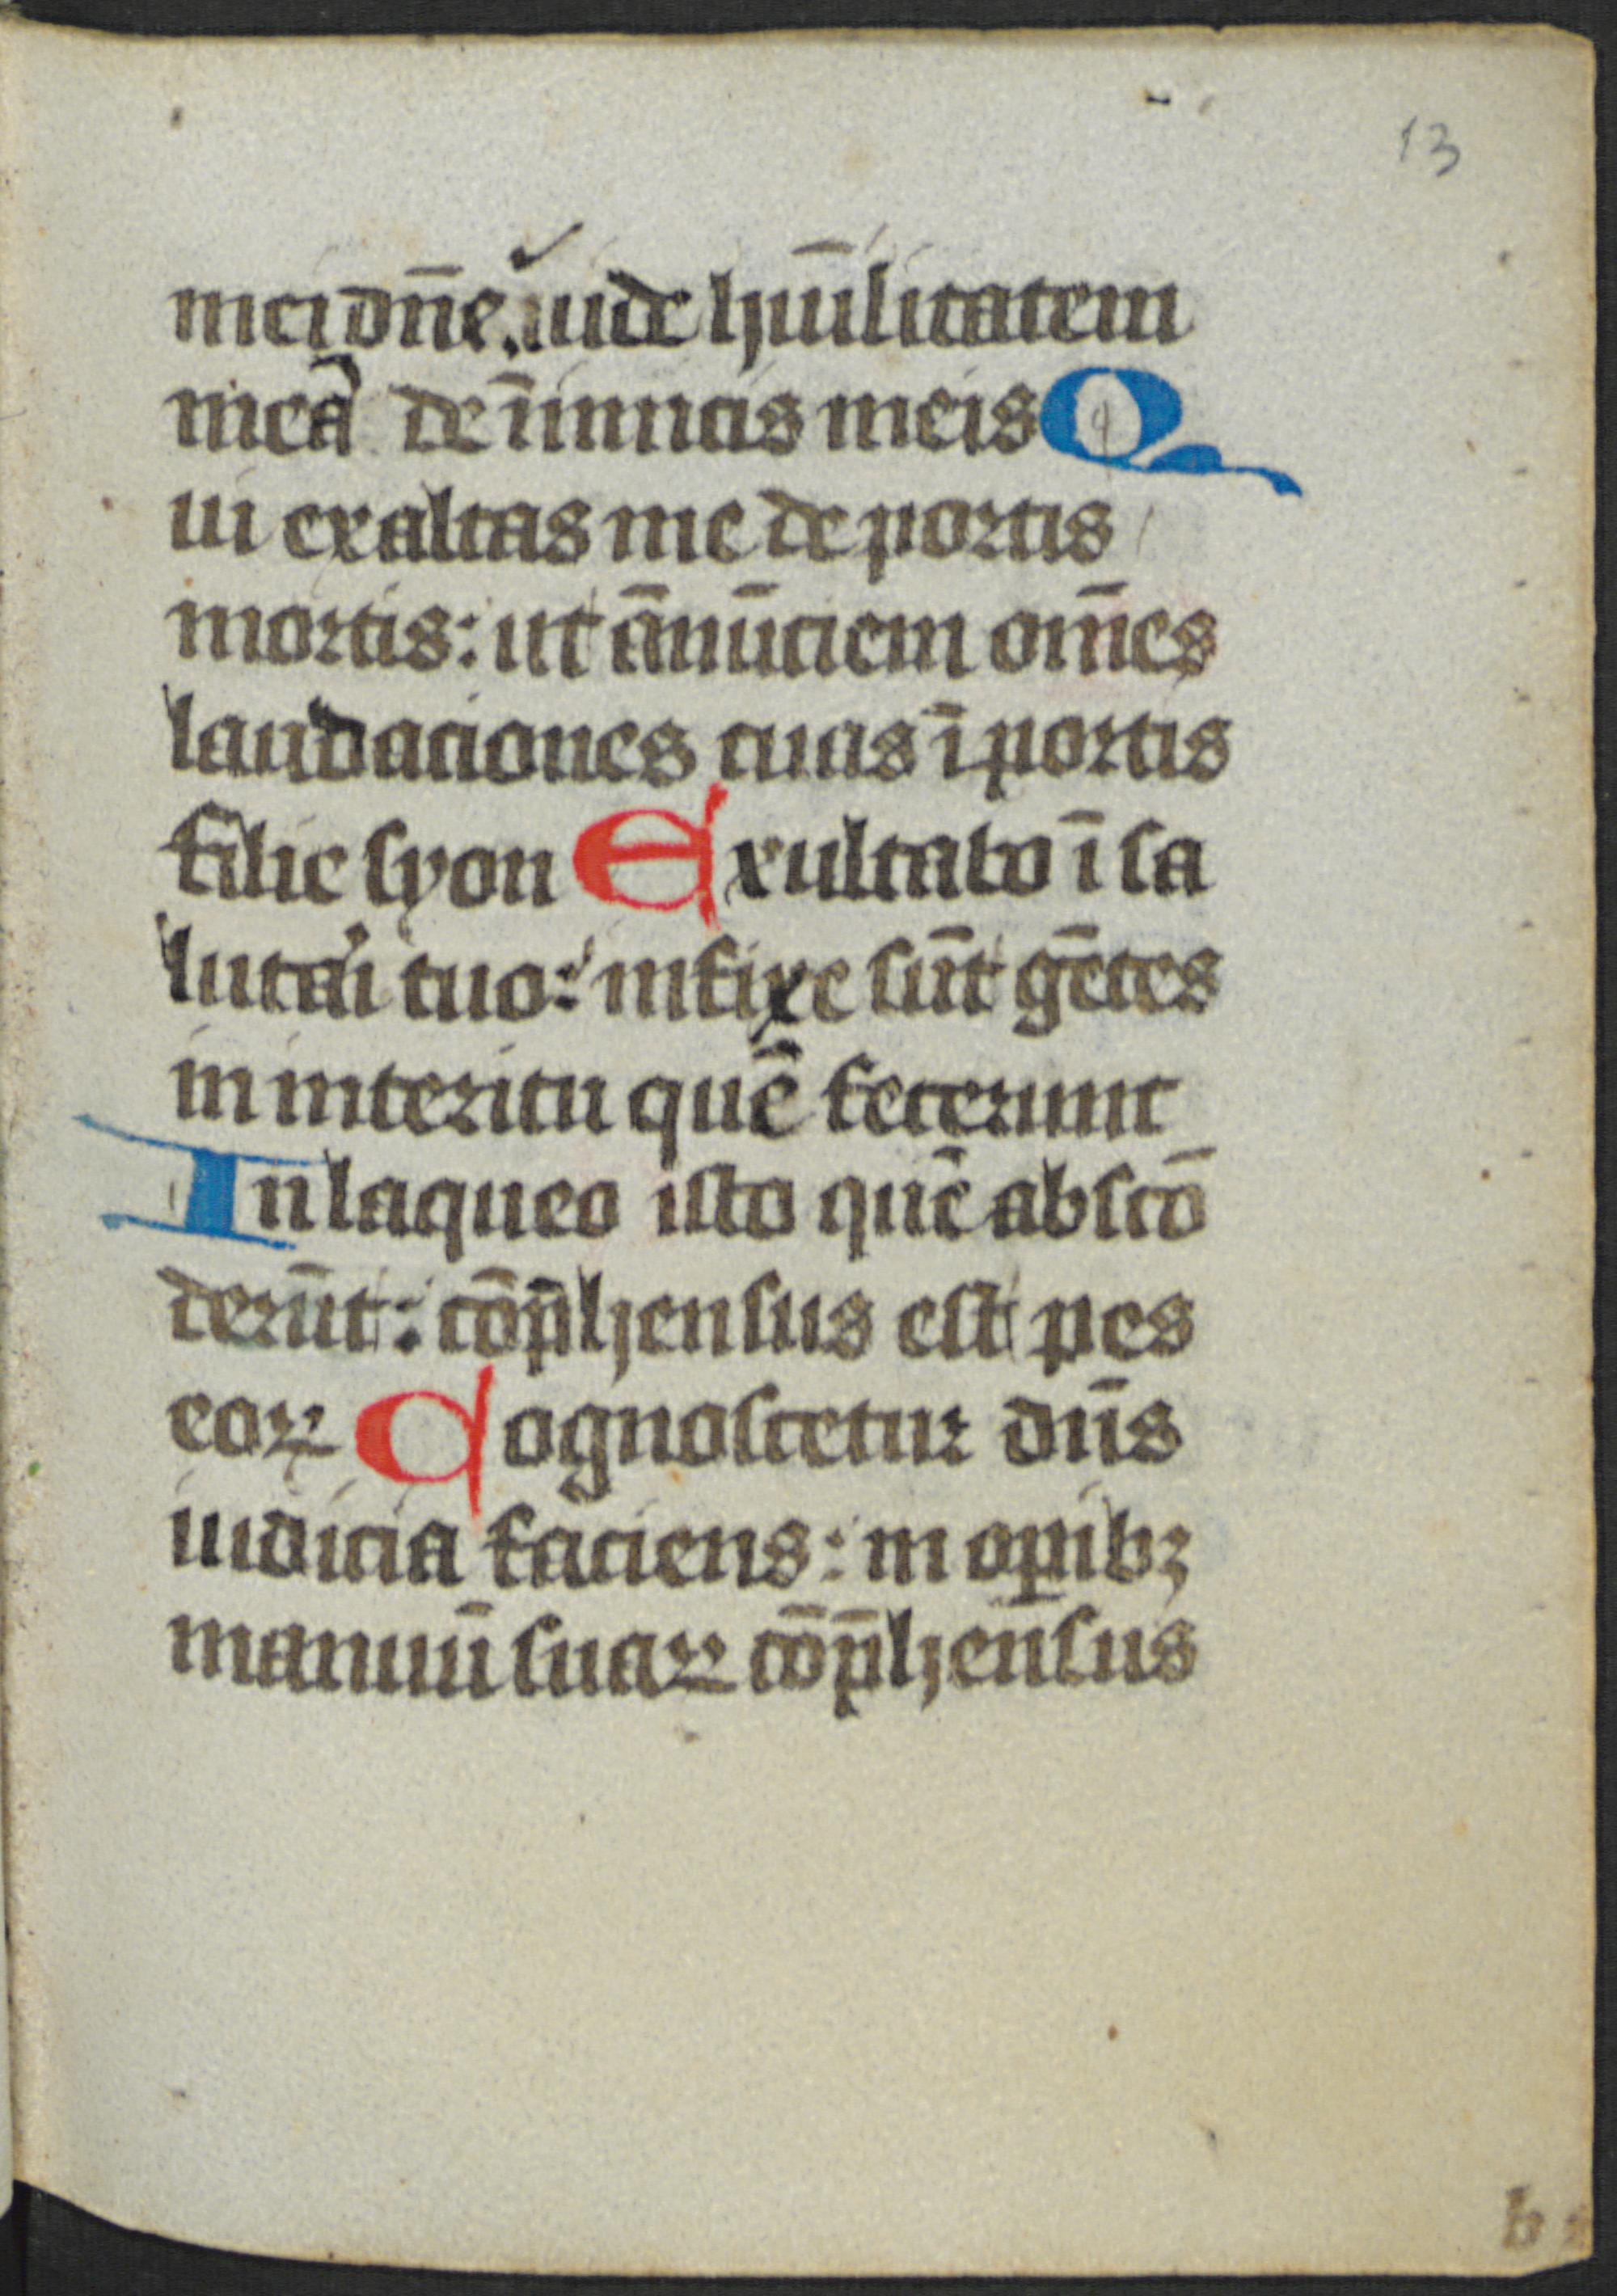 13
mei dn̄e. uide hūilitatem
meā de inimicis meis Q
ui exaltas me de portis
mortis: ut ānūciem om̄es
laudaciones tuas ī portis
filie syon Exultabo ī sa
lutari tuo: infixe sūt gētes
in interitu quē fecerunt
In laqueo isto quē abscō
derūt: cōp̄hensus est pes
eoꝝ Cognoscetur dn̄s
iudicia faciens: in opibꝫ
manuū suaꝝ cōp̄hensus
b